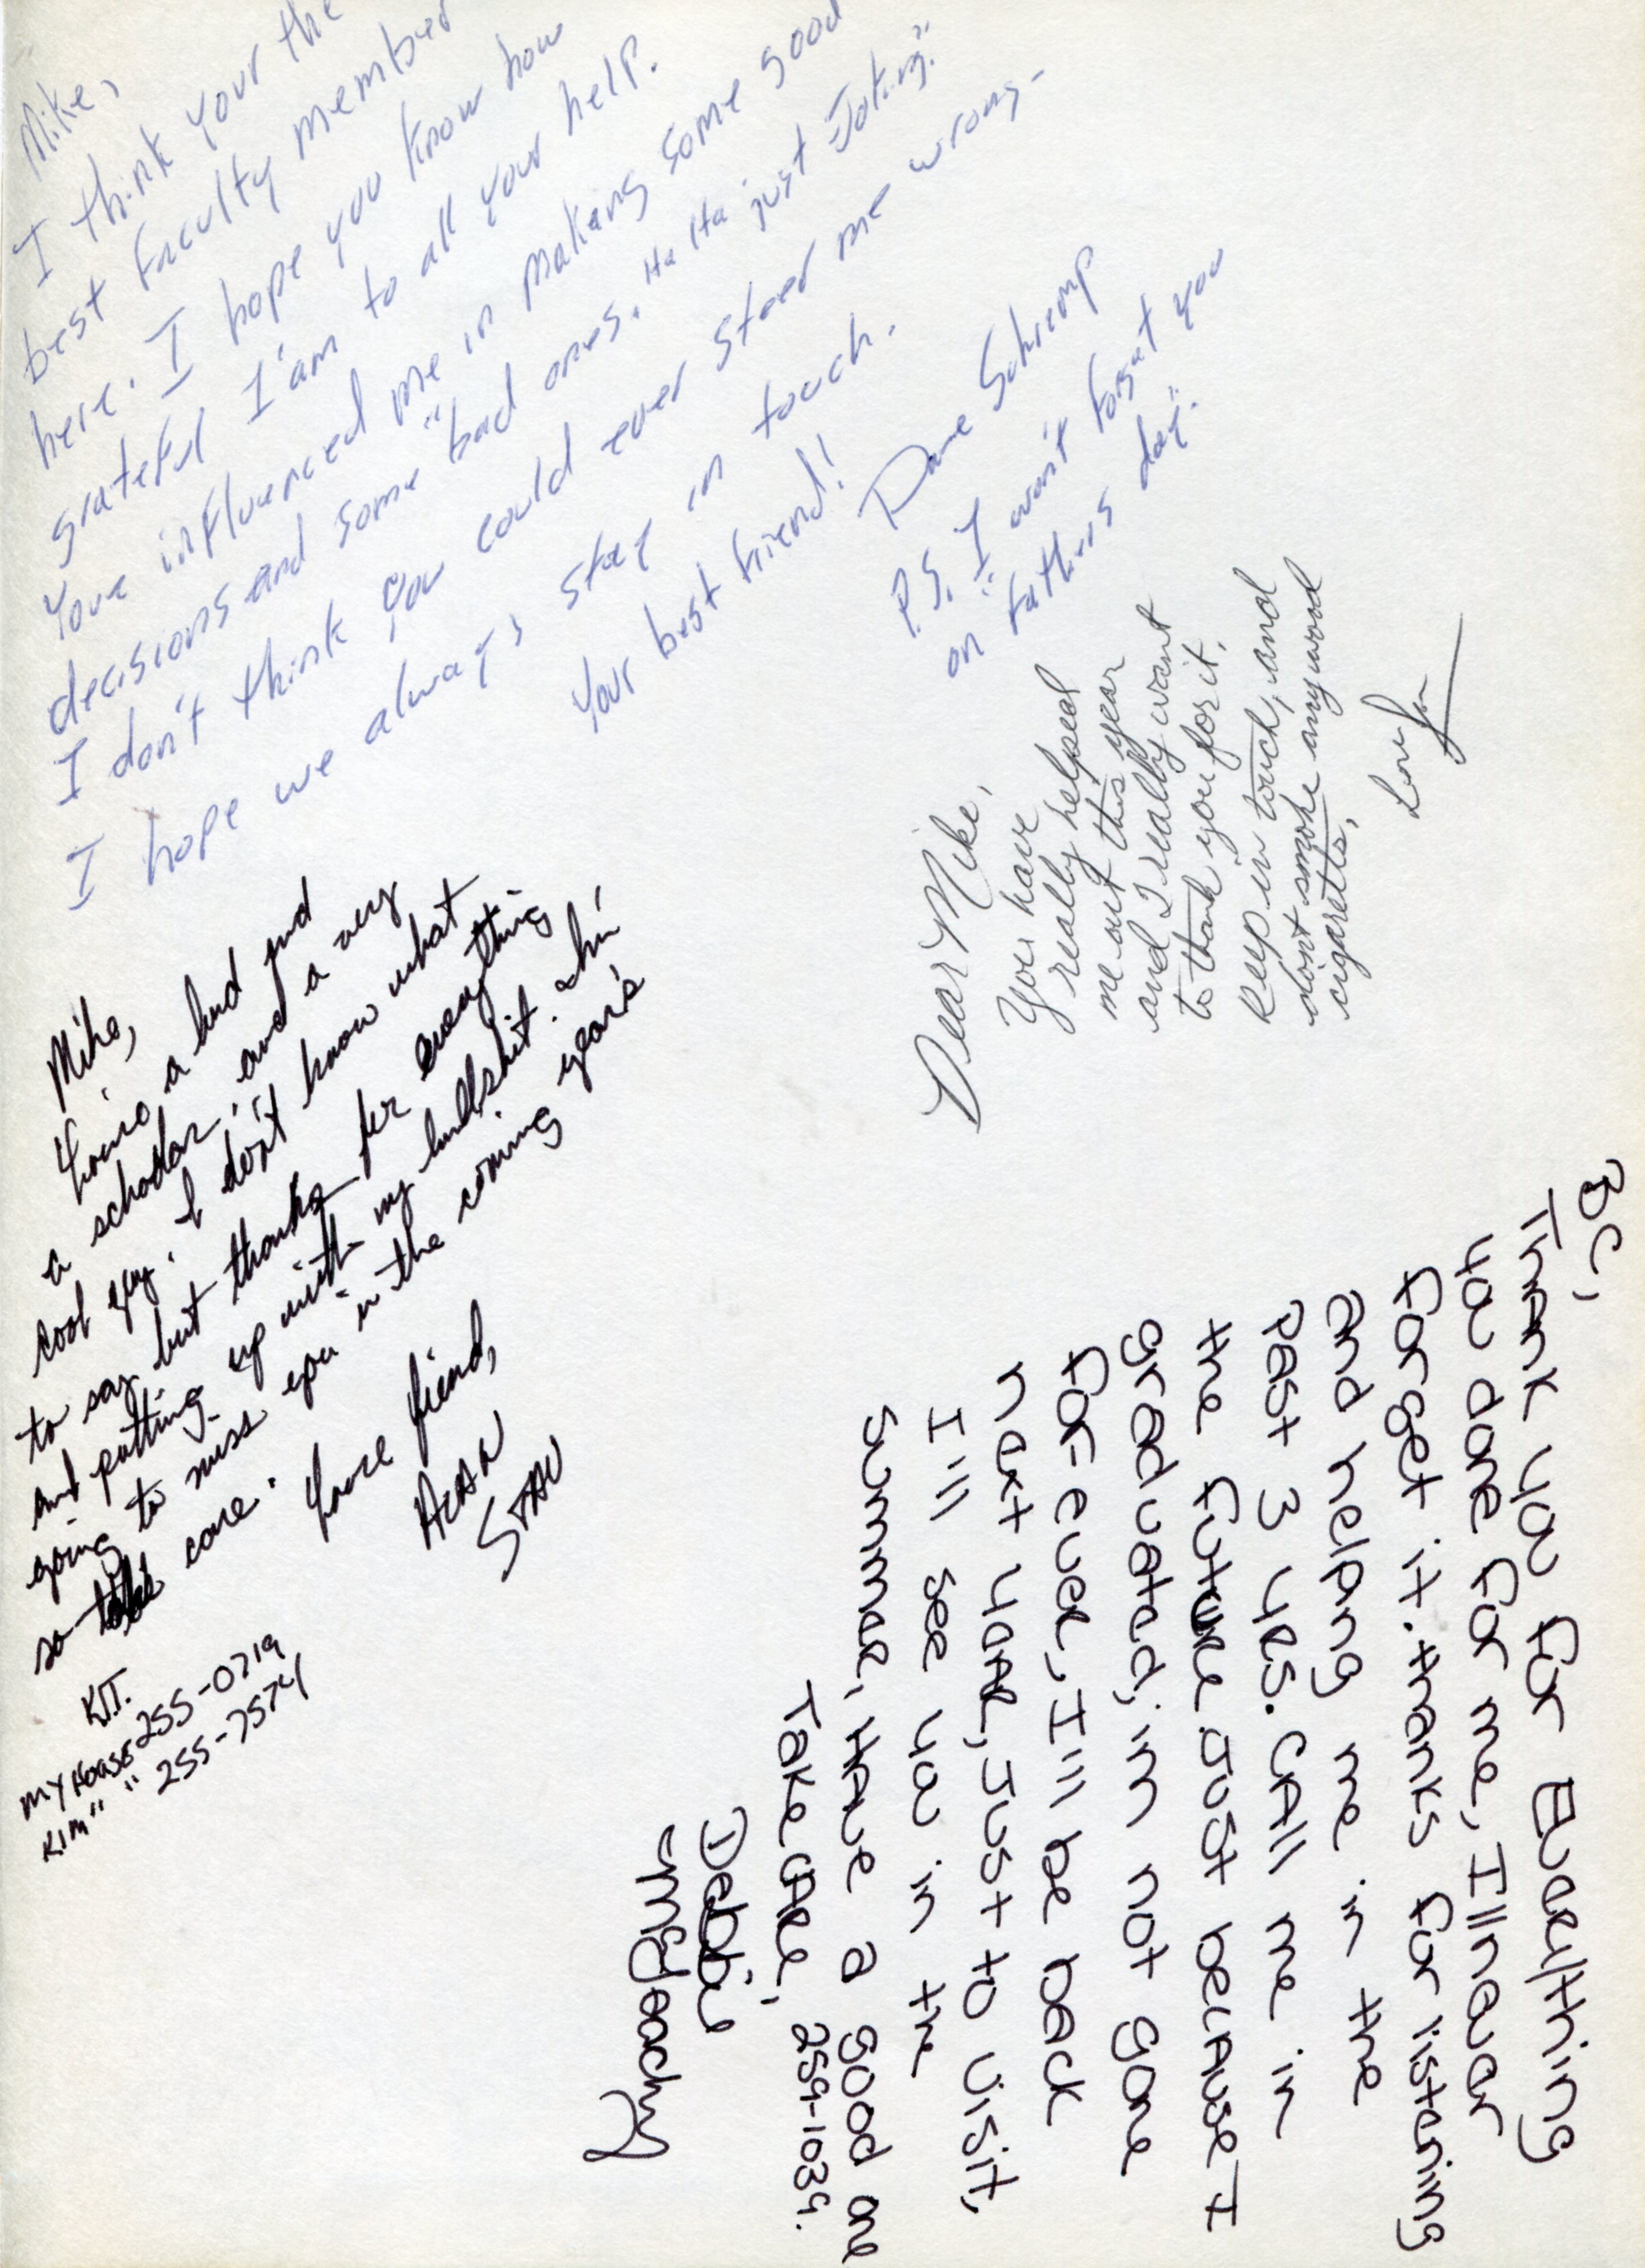 Mike,
I think your the
best faculty member
here. I hope you know how
grateful I'am to all your help.
Youe influenced me in making some good
decisions and some "bad ones. Ha Ha just Joking."
I don't think you could ever steer me wrong-
I hope we always stay in touch.
Your best friend!
Dave Schremp
P.S. "I won't forget you
on fathers day".
Dear Mike,
You have
really helped
me out this year
and I really want
to thank you for it.
Keep in touch, and
don't smoke any wood
cigaretts.
Love
Mike,
a bud and
a scholar, and a very
cool guy. I don't know what
to say but thanks for everything
and putting up with my bullshit.
going to miss you in the coming year's
so take care.
friend,
ALAN
STAU
KIT.
MY HOUSE 255-0719
KIM" " 255-7574
BC,
Thank you for Everything
you done for me, I'll never
forget it. thanks for listening
and helping me in the
past 3 yrs. CAll me in
the future Just because I
graduated, im not gone
for-ever, I'll be back
next year, Just to visit,
I'll see you in the
summer, Have a good one
Take care, 259-1039.
Debbie